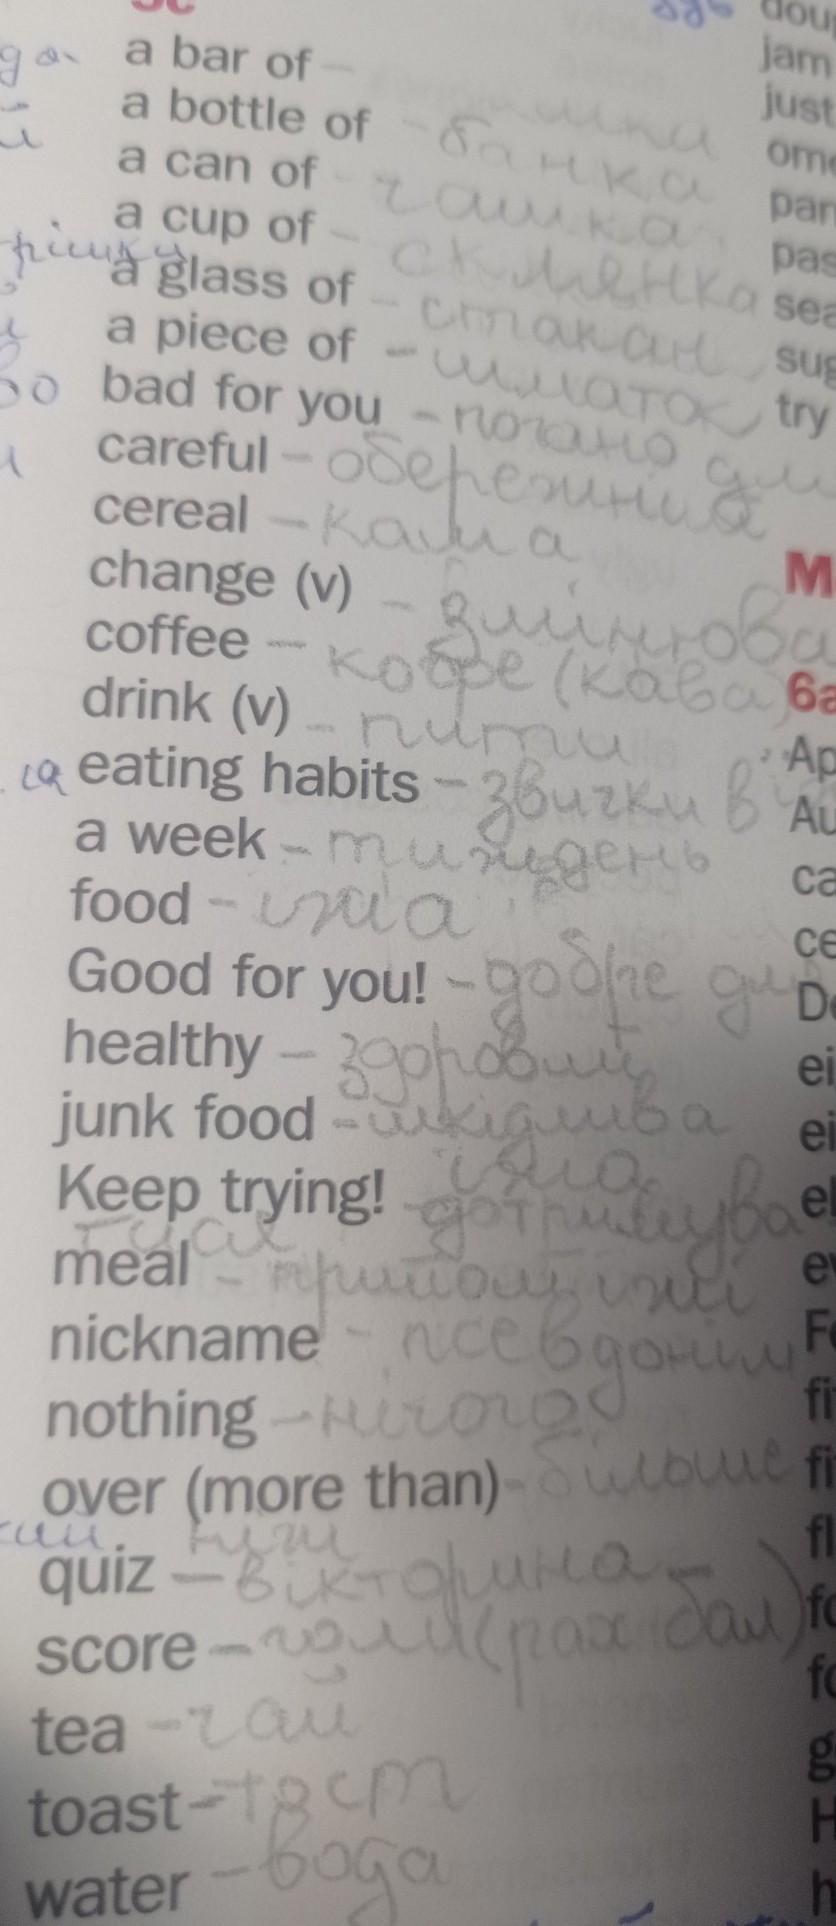 5c
a bar of –
a bottle of –
a can of – банка
a cup of – чашка
a glass of – склянка
стакан
a piece of – шматок
bad for you – погано для
careful – обережний
cereal – каша
change (v) – змінюва
coffee – кофе (кава)
drink (v) – пити
eating habits – звички в
a week – тиждень
food – їжа
Good for you! – добре для
healthy – здоровий
junk food – шкідлива
їжа
Keep trying! – дотримува
meal – прийому їжі
nickname – псевдонім
nothing – нічого
over (more than) – більше
ніж
quiz – вікторина –
score – голи (рах бал)
tea – чай
toast – тост
water – вода
dou
jam
just
ome
par
pas
sea
sug
try
M
6a
Ap
Au
ca
ce
De
ei
ei
el
ev
Fe
fi
fi
fl
fo
fo
g
H
h